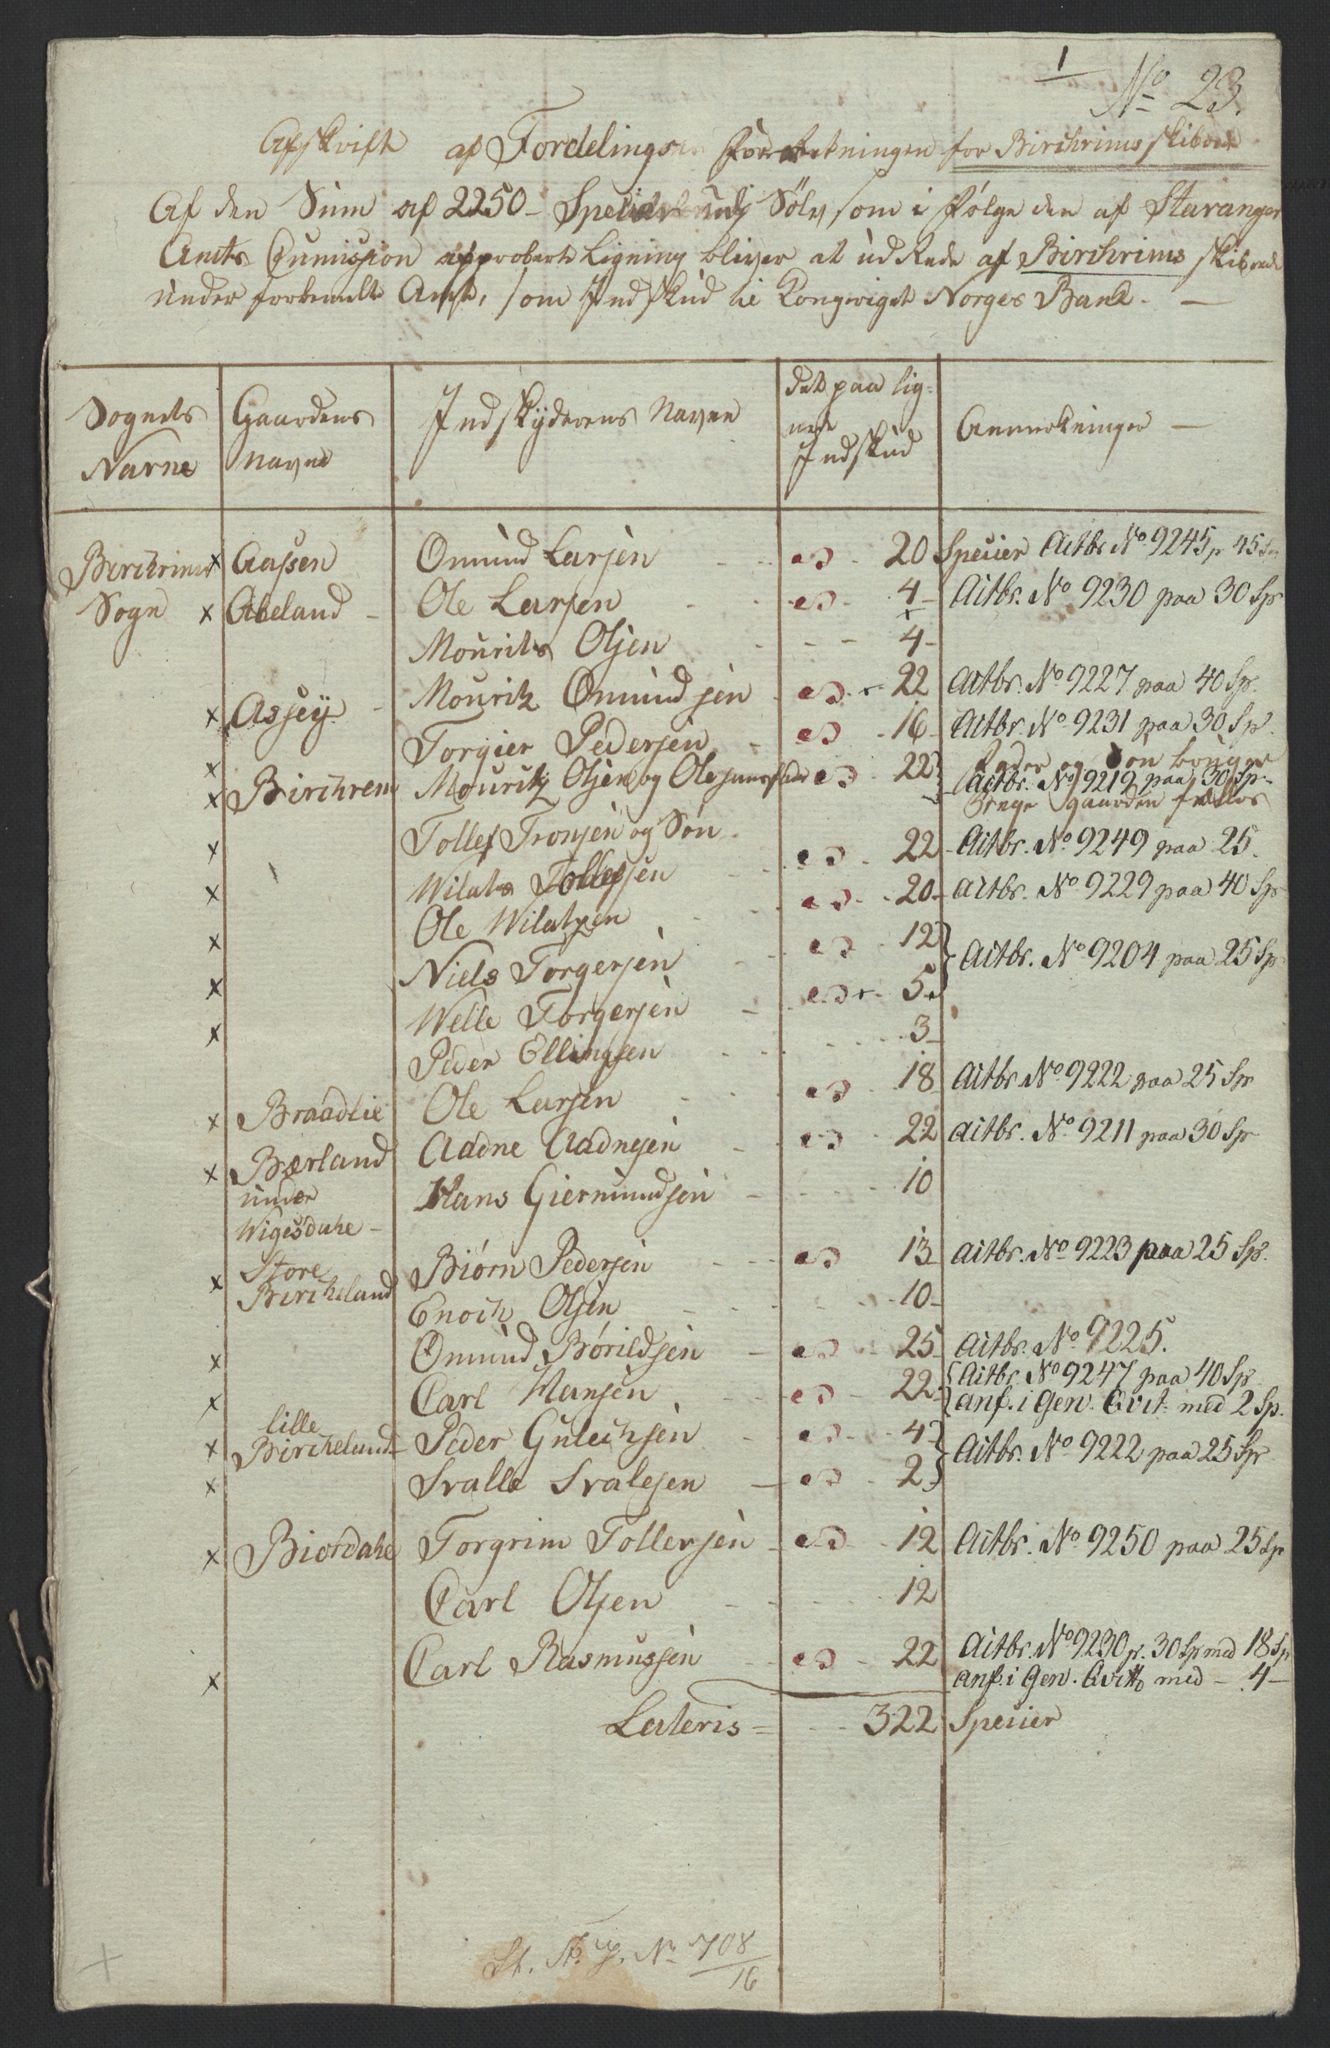 1
No 23
Afskrift af Fordelings Fortekningen for Birchrims skibrede
Af den Sum af 2250 Specier udj Sølv som i følge den af Stavanger
Amts Cumission approberte Ligning bliver at udrede af Birchrims skibrede
under forbemelte Amt, som Indskud til Kongeriget Norges Bank. —
Sognets Navne | Gaardens Navne | Indskyderens Navne | Det paa lignede Indskud | Anmerkninger —
Birchrims Sogn x Aassen Omund Larsen 20 Specier Aitbr. No 9245 p 45 Sp
x Abeland - Ole Larsen 4 - Aitbr. No 9230 paa 30 Sp
Mourits Olsen - - 4 -
x Assey - Mouritz Omundsen 22 Aitbr. No 9227 paa 40 Sp.
x Torgier Pedersen 16 - Aitbr. No 9231 paa 30 Sp.
x Birchrem Mouritz Olsen og Ole 22 Fader og Søn bruger
Aitbr. No 9219 paa 30 Sp.
gaarden fælles
x Tollef Tronsen og Søn 22 - Aitbr. No 9249 paa 25.
x Wilats Tollefsen 20 - Aitbr. No 9229 paa 40 Sp
x Ole Wilatsen 12 } Aitbr. No 9204 paa 25 Sp
x Niels Torgersen 5
x Welle Torgersen 3 -
Peder Ellingsen 18 Aitbr. No 9222 paa 25 Sp
x Braadlie Ole Larsen 22 Aitbr. No 9211 paa 30 Sp
x Bærland Aadne Aadnesen
under Hans Giermundsen 10
Wigesdahe -
x Store Bircheland Biørn Pedersen 13 Aitbr. No 9223 paa 25 Sp.
Enoch Olsen 10 -
x Omund Børildsen 25 Aitbr. No 9225.
x Carl Hansen 22 { Aitbr. No 9247 paa 40 Sp
anf. i Gen. Qvit. med 2 Sp.
x lille Bircheland Peder Guleichsen 4 } Aitbr. No 9222 paa 25 Sp
x Svalle Svalesen 2
x Biordahe Torgrim Tollefsen 12 Aitbr. No 9250 paa 25 Sp
Carl Olsen 12
x Carl Rasmussen 22 Aitbr. No 9230 p. 30 Sp med 18 Sp
anf. i Gen. Qvitt. med - 4 -
Lateris = 322 Specier
St. No 708/16